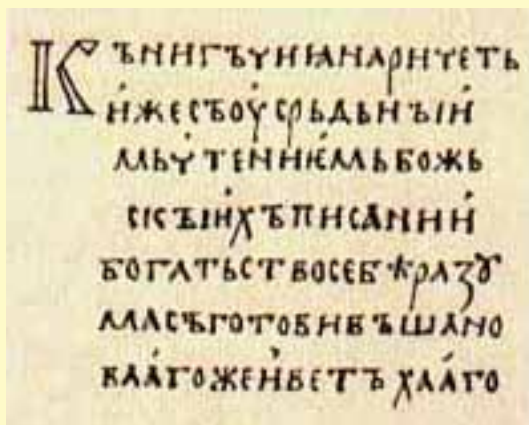 КЪНИГЪЧИꙖНАРИЧЕТЬ
И҆ЖЕСЪОУ҆СРЬДЬНЪІИ҆
МЬЧ҆ТЕНИѤМЬБОЖЬ
СКЪІИХЪПИСАНИИ҆
БОГАТЬСТВОСЕБѢРАЗꙊ
МАСЪГОТОВИВЪШАНО
ВАА҆ГОЖЕИ҆ВЕТЪХАА҆ГО